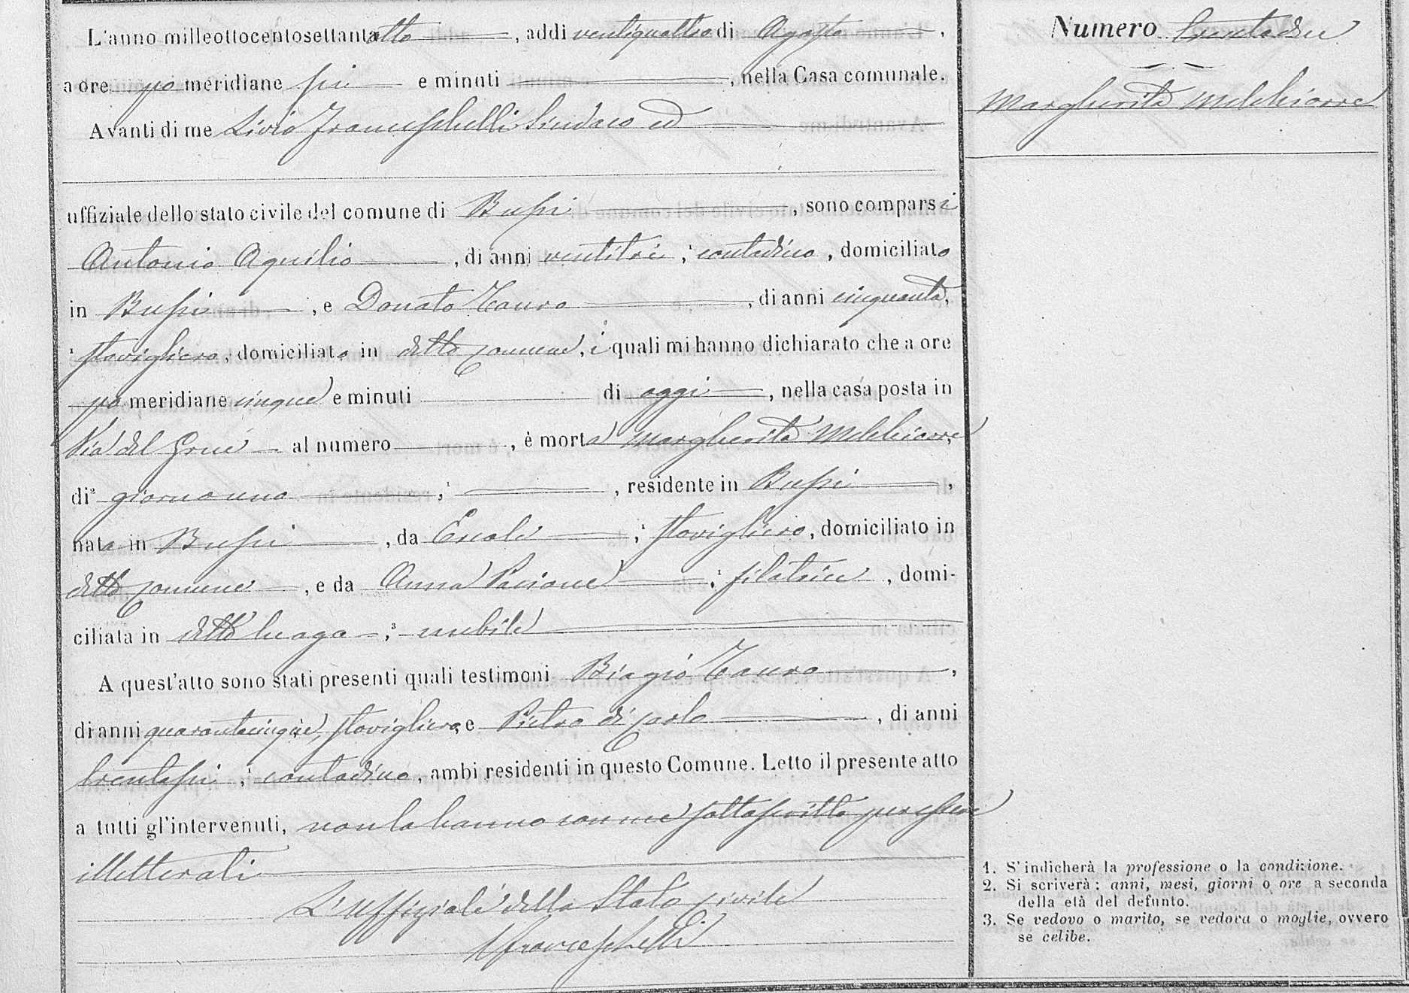 L'anno milleottocentosettantaotto, addi ventiquattro di Agosto,
a ore po meridiane sei e minuti, nella Casa comunale.
Avanti di me Livio Franceschelli Sindaco ed
uffiziale dello stato civile del comune di Bussi, sono comparsi
Antonio Aquilio, di anni ventitre, contadino, domiciliato
in Bussi, e Donato Tauro, di anni cinquanta,
stovigliero, domiciliato in detto comune, i quali mi hanno dichiarato che a ore
po meridiane cinque e minuti di oggi, nella casa posta in
Via del al numero, è morta Margherita Melchiorre
di² giorno uno, ¹, residente in Bussi,
nata in Bussi, da Ercole, ¹ stovigliero, domiciliato in
detto comune, e da Anna Pacione, ¹ filatrice, domi-
ciliata in detto luogo, ³ nubile
A quest'atto sono stati presenti quali testimoni Biagio Tauro,
di anni quarantacinque, stovigliero, e Pietro di Carlo, di anni
trentasei, contadino, ambi residenti in questo Comune. Letto il presente atto
a tutti gl'intervenuti, non lo hanno con me sottoscritto per essere
illetterati
L'Uffiziale dello Stato civile
LFranceschelli
Numero
Margherita Melchiorre
1. S'indicherà la professione o la condizione.
2. Si scriverà: anni, mesi, giorni o ore a seconda
della età del defunto.
3. Se vedovo o marito, se vedova o moglie, ovvero
se celibe.